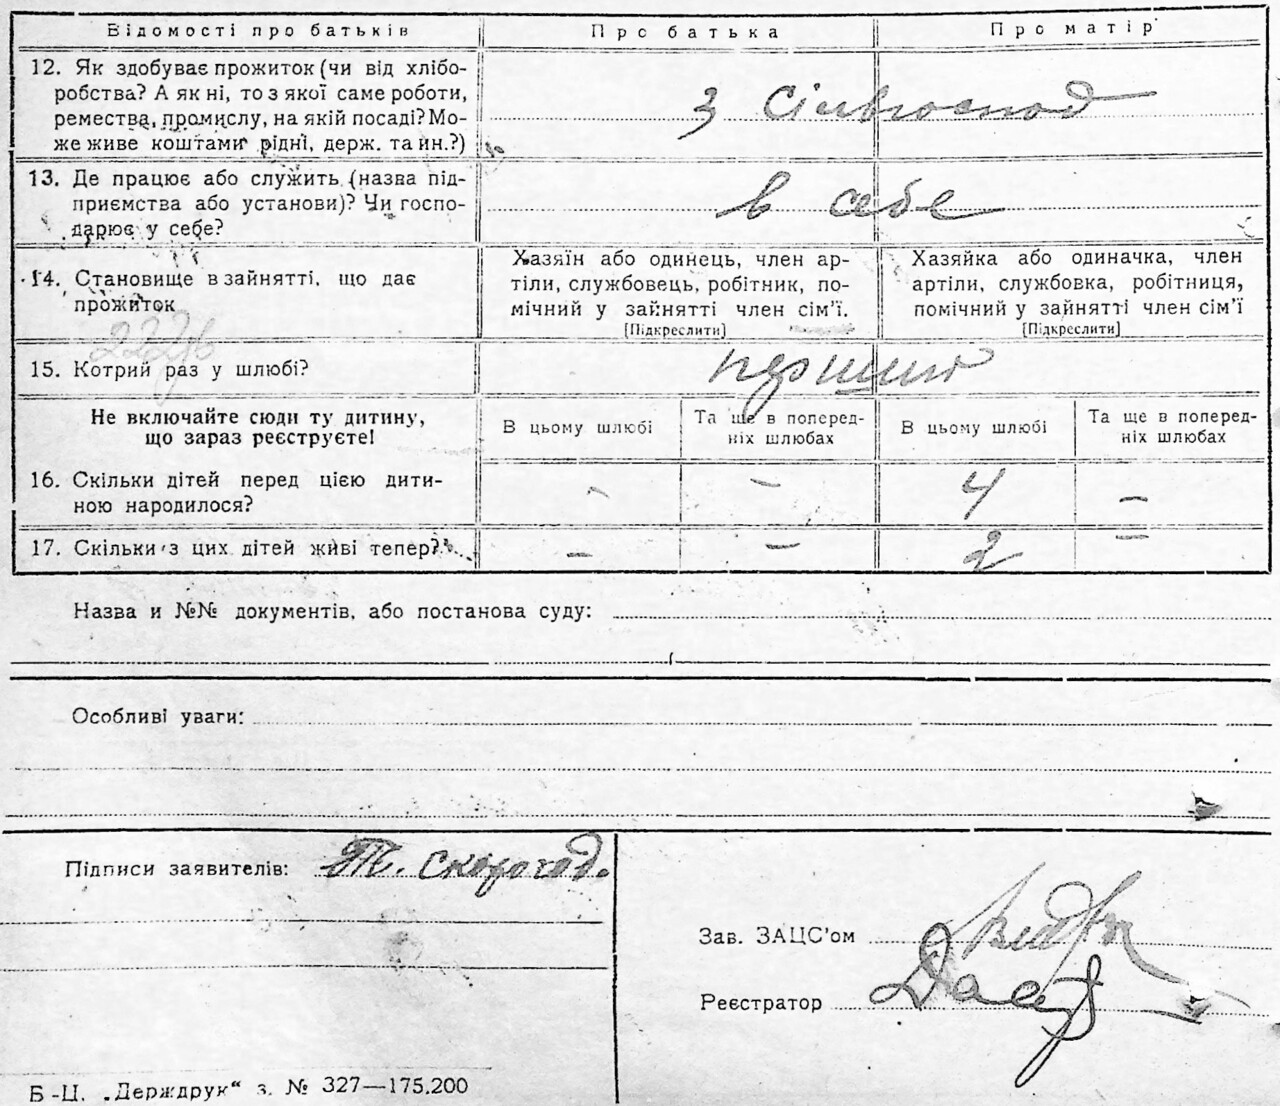 Відомості про батьків Про батька Про матір
12. Як здобуває прожиток (чи від хлібо-
робства? А як ні, то з якої саме роботи,
ремества, промислу, на якій посаді? Мо-
же живе коштами рідні, держ. та ин.?)
з Сільгоспод
13. Де працює або служить (назва під-
приємства або установи)? Чи госпо-
дарює у себе?
в себе
14. Становище в зайнятті, що дає
прожиток
Хазяїн або одинець, член ар-
тіли, службовець, робітник, по-
мічний у зайнятті член сім'ї.
[Підкреслити]
Хазяйка або одиначка, член
артіли, службовка, робітниця,
помічний у зайнятті член сім'ї
[Підкреслити]
15. Котрий раз у шлюбі?
перший
Не включайте сюди ту дитину,
що зараз реєструєте!
В цьому шлюбі
Та ще в поперед-
ніх шлюбах
В цьому шлюбі
Та ще в поперед-
ніх шлюбах
16. Скільки дітей перед цією дити-
ною народилося?
- - 4 -
17. Скільки з цих дітей живі тепер?
- - 2 -
Назва и №№ документів, або постанова суду:
Особливі уваги:
Підписи заявителів: Т. Скороход.
Зав. ЗАЦС'ом
Реєстратор
Б-Ц. „Держдрук“ з. № 327—175.200